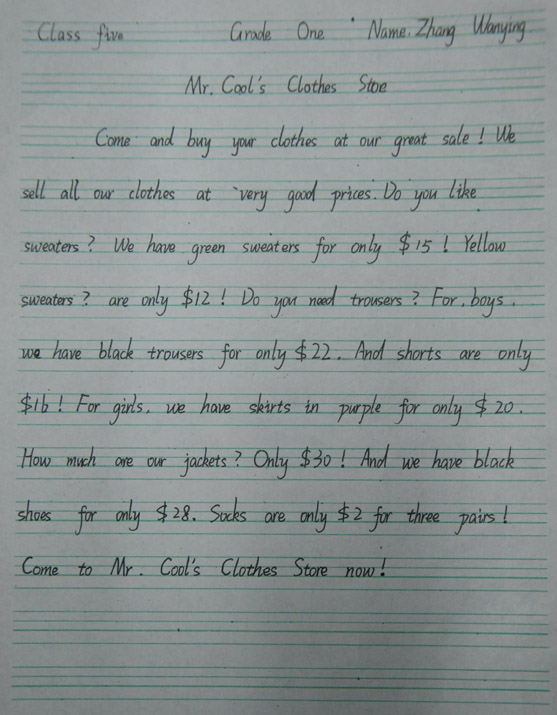 Class five Grade One Name. Zhang Wanying
Mr. Cool's Clothes Stoe
Come and buy your clothes at our great sale! We
sell all our clothes at very good prices. Do you like
sweaters? We have green sweaters for only $15! Yellow
sweaters? are only $12! Do you need trousers? For. boys.
we have black trousers for only $22. And shorts are only
$16! For girls. we have skirts in purple for only $20.
How much are our jackets? Only $30! And we have black
shoes for only $28. Socks are only $2 for three pairs!
Come to Mr. Cool's Clothes Store now!